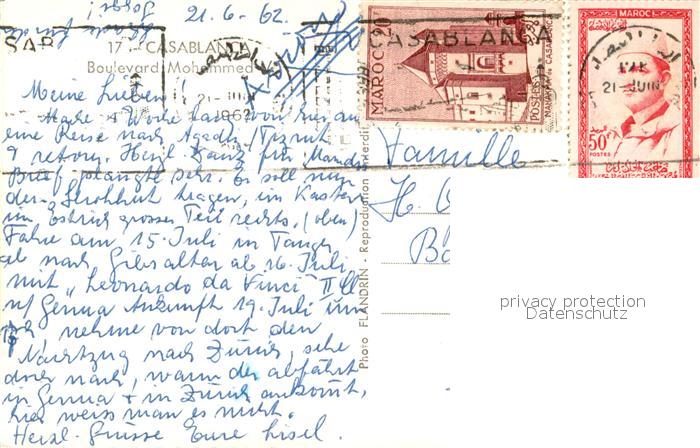 21. 6. 62.
17. - CASABLANCA
Boulevard Mohammed
CASABLANCA
MAROC 20
POSTES
MAROC
50F
POSTES
21 - JUIN
21 - JUIN
1962
Meine Lieben!
Mache 1 Woche lang von hier aus
eine Reise nach Agadir / Tiznit
& retour. Herzl. Dank für Mamis
Brief, plangte sehr. Es soll nur
den Strohhut tragen, im Kasten
im Estrich grosser Teil rechts. (oben)
Fahre am 15. Juli in Tanger
ab nach Gibraltar ab 16. Juli
mit "Leonardo da Vinci" II Cl.
Genua Ankunft 19. Juli um
nehme von dort den
Nachtzug nach Zürich, sehe
doch nach, wann der abfährt
in Genua + in Zürich ankommt,
hier weiss man es nicht.
Herzl. Grüsse Eure Lisel.
Familie
H.
Photo FLANDRIN - Reproduction interdite
privacy protection
Datenschutz